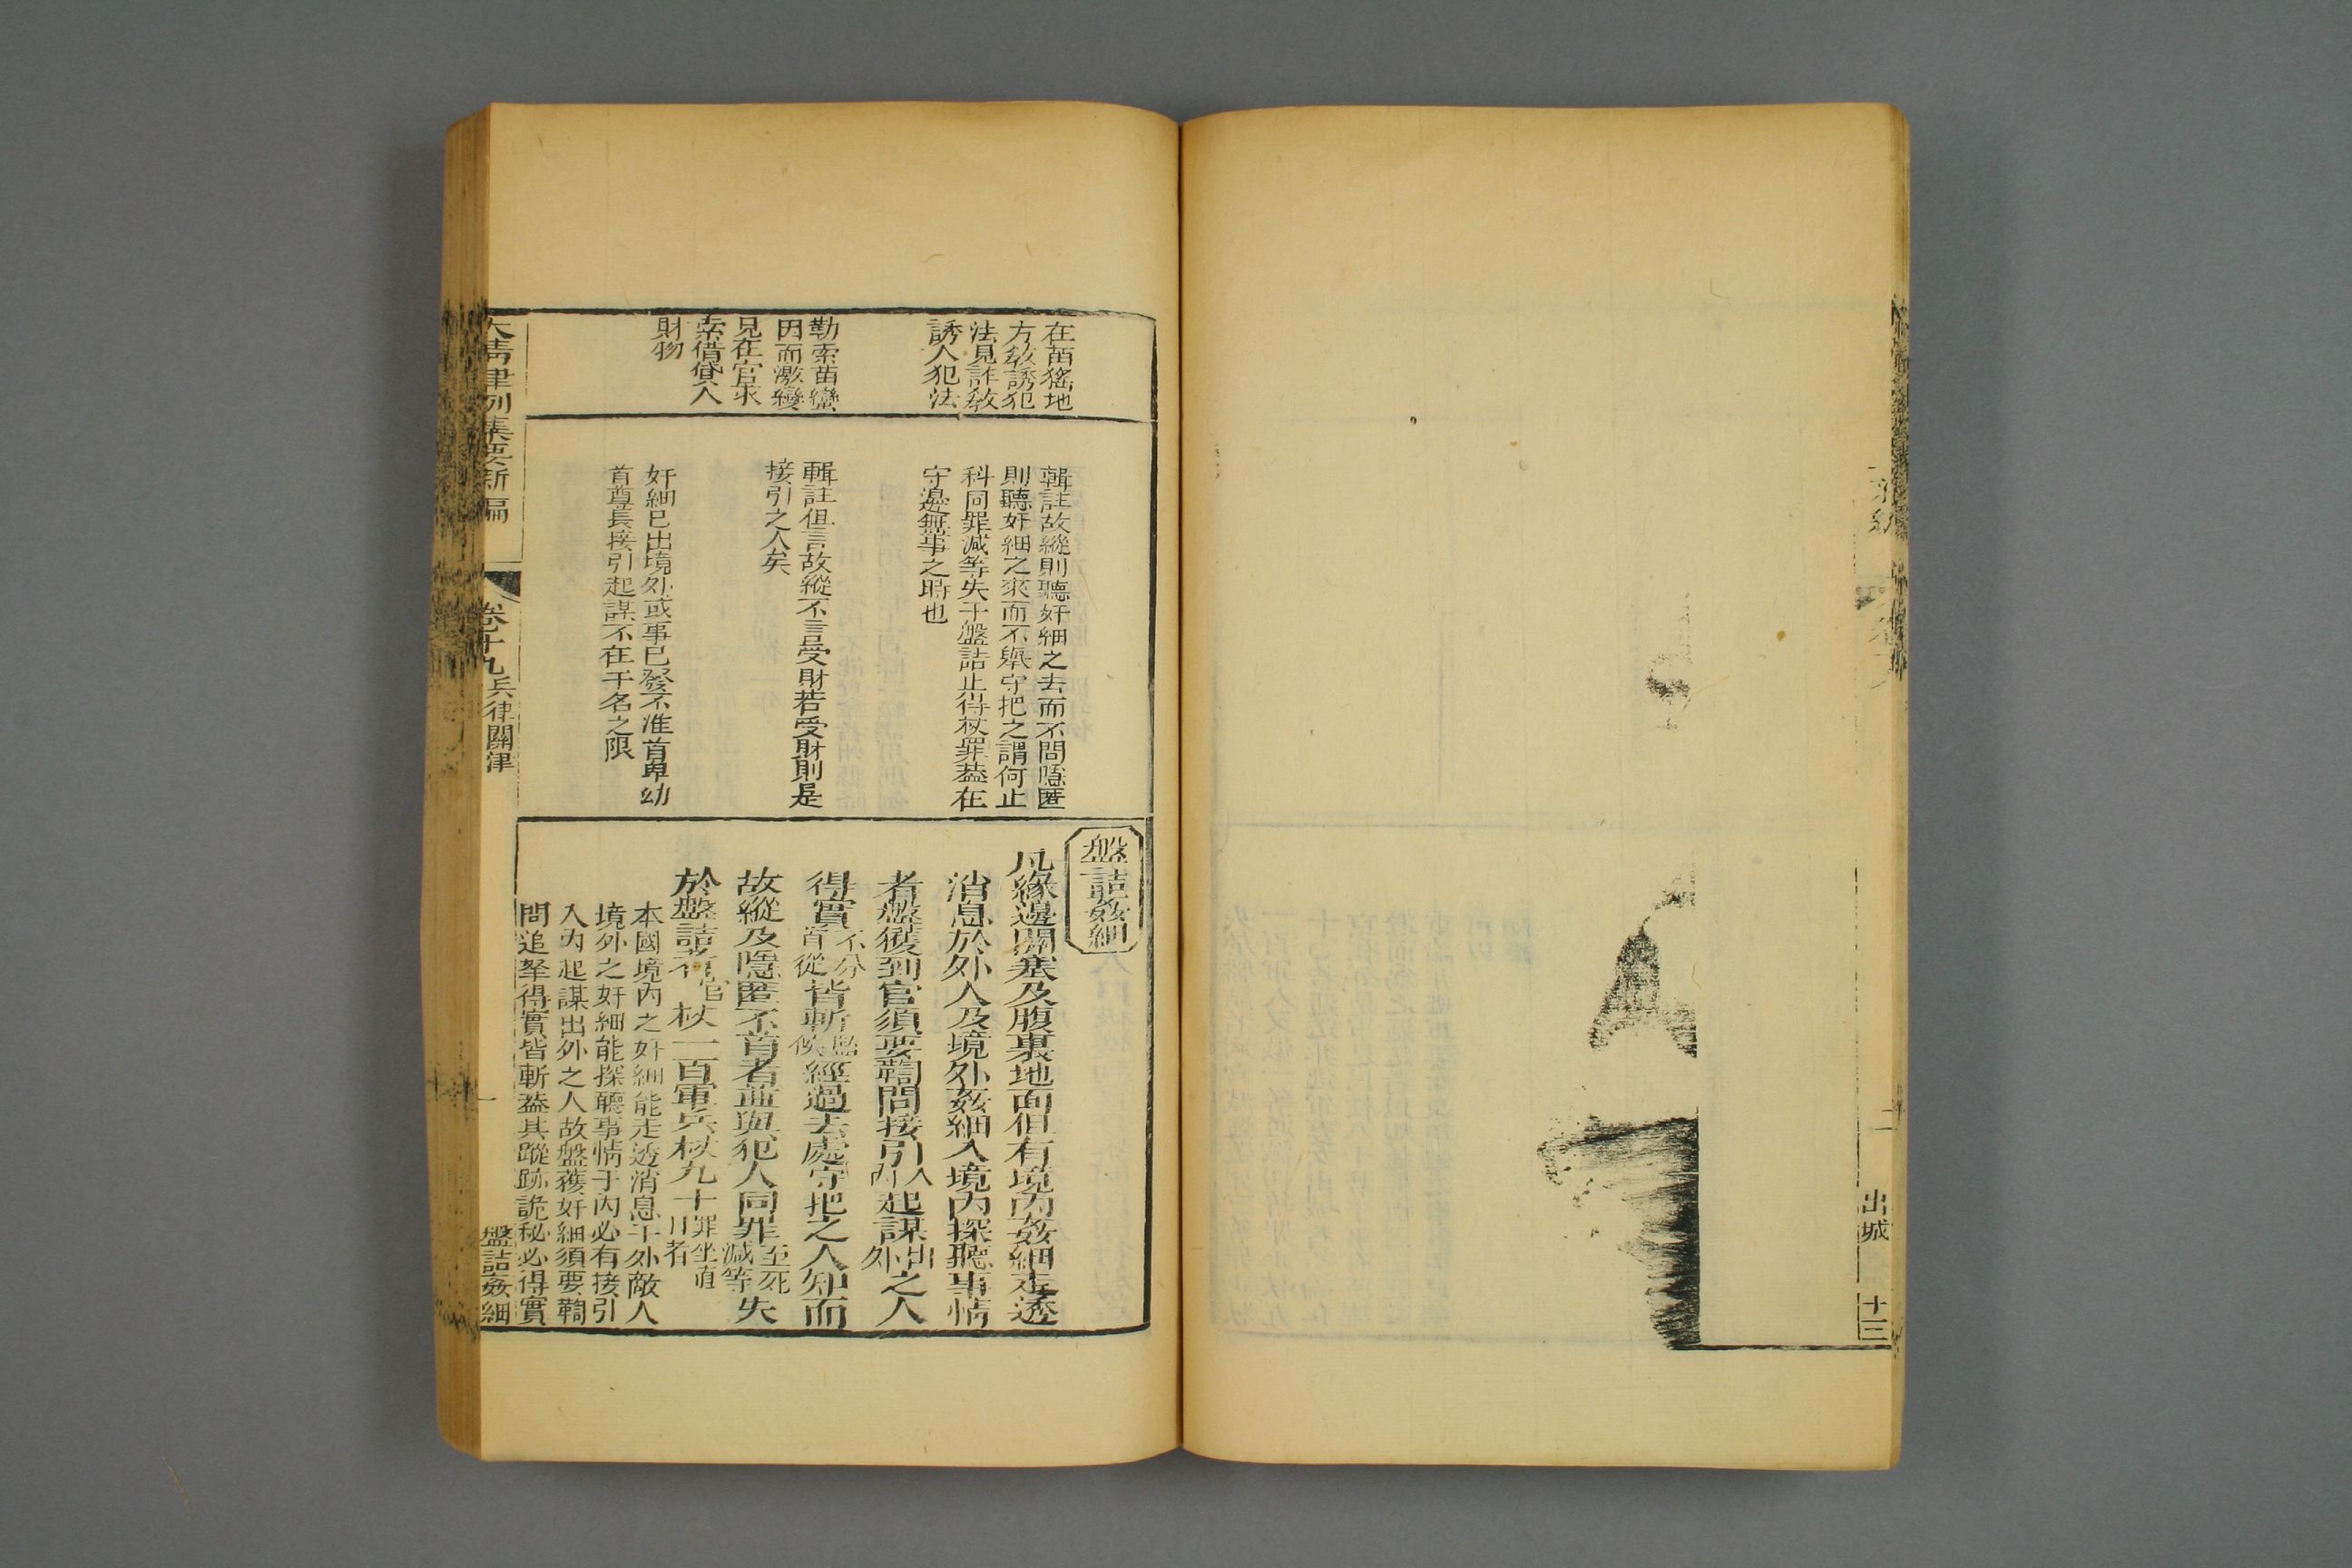 出城
十三
在苗猺地
方教誘犯
法見詐教
誘人犯法
勒索苗蠻
因而激變
見在官求
索借貸人
財物
輯註故縱則聽奸細之去而不問隱匿
則聽奸細之來而不舉守把之謂何止
科同罪減等失于盤詰止得杖罪葢在
守邊無事之時也
輯註但言故縱不言受財若受財則是
接引之人矣
奸細已出境外或事已發不准首卑幼
首尊長接引起謀不在干名之限
盤詰姦細
凡緣邊關塞及腹裏地面但有境內姦細走透
消息於外人及境外姦細入境內探聽事情
者盤獲到官須要鞫問接引入內起謀出外之人
得實不分首從皆斬監候經過去處守把之人知而
故縱及隱匿不首者並與犯人同罪至死減等失
於盤詰者官杖一百軍兵杖九十罪坐直日者
本國境內之奸細能走透消息于外敵人
境外之奸細能探聽事情于內必有接引
入內起謀出外之人故盤獲奸細須要鞫
問追拏得實皆斬葢其蹤跡詭秘必得實
大清律例集要新編
卷十九
兵律關津
一
盤詰姦細